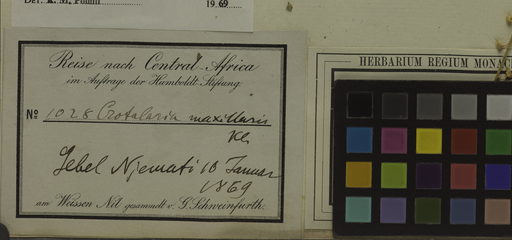 Det. K. M. Polhill 1969
Reise nach Central-Africa
im Auftrage der Humboldt-Stiftung.
No 1028 Crotalaria maxillaris
Kl.
Jebel Njemati 10 Januar
1869
am Weissen Nil gesammelt v. G. Schweinfurth.
HERBARIUM REGIUM MONAC